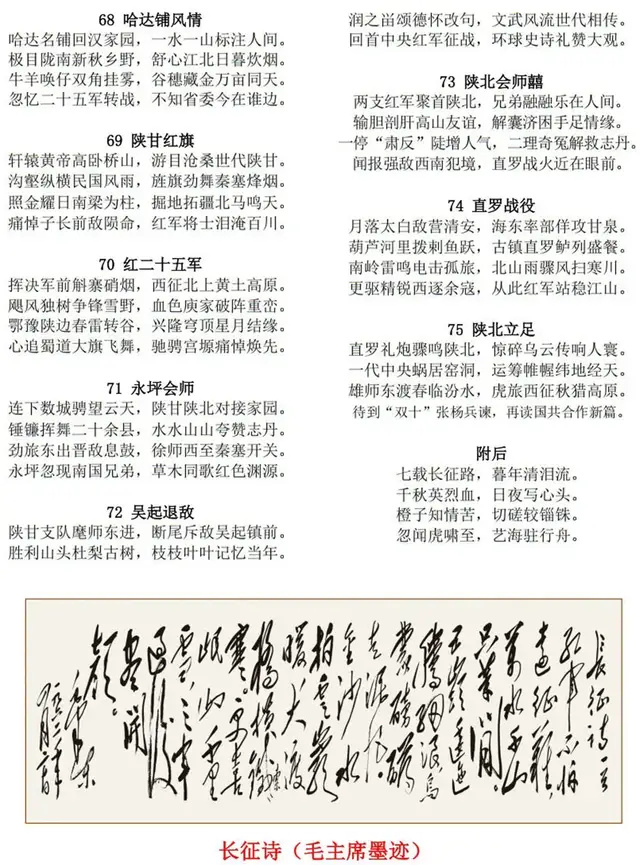 68 哈达铺风情
哈达名铺回汉家园，一水一山标注人间。
极目陇南新秋乡野，舒心江北日暮炊烟。
牛羊唤仔双角挂雾，谷穗藏金万亩同天。
忽忆二十五军转战，不知省委今在谁边。
69 陕甘红旗
轩辕黄帝高卧桥山，游目沧桑世代陕甘。
沟壑纵横民国风雨，旌旗劲舞秦塞烽烟。
照金耀日南梁为柱，掘地拓疆北马鸣天。
痛悼子长前敌陨命，红军将士泪淹百川。
70 红二十五军
挥决军前斛寨硝烟，西征北上黄土高原。
飓风独树争锋雪野，血色庾家破阵重峦。
鄂豫陕边春雷转谷，兴隆穹顶星月结缘。
心追蜀道大旗飞舞，驰骋宫塬痛悼焕先。
71 永坪会师
连下数城骋望云天，陕甘陕北对接家园。
锤镰挥舞二十余县，水水山山夸赞志丹。
劲旅东出晋敌息鼓，徐师西至秦塞开关。
永坪忽现南国兄弟，草木同歌红色渊源。
72 吴起退敌
陕甘支队麾师东进，断尾斥敌吴起镇前。
胜利山头杜梨古树，枝枝叶叶记忆当年。
润之甾颂德怀改句，文武风流世代相传。
回首中央红军征战，环球史诗礼赞大观。
73 陕北会师囍
两支红军聚首陕北，兄弟融融乐在人间。
输胆剖肝高山友谊，解囊济困手足情缘。
一停“肃反”陡增人气，二理奇冤解救志丹。
闻报强敌西南犯境，直罗战火近在眼前。
74 直罗战役
月落太白敌营清安，海东率部佯攻甘泉。
葫芦河里拨剌鱼跃，古镇直罗鲈列盛餐。
南岭雷鸣电击孤旅，北山雨骤风扫寒川。
更驱精锐西逐余寇，从此红军站稳江山。
75 陕北立足
直罗礼炮骤鸣陕北，惊碎乌云传响人寰。
一代中央蜗居窑洞，运筹帷幄纬地经天。
雄师东渡春临汾水，虎旅西征秋猎高原。
待到“双十”张杨兵谏，再读国共合作新篇。
附后
七载长征路，暮年清泪流。
千秋英烈血，日夜写心头。
橙子知情苦，切磋较锱铢。
忽闻虎啸至，艺海驻行舟。
長征诗一首
红軍不怕
遠征難，
萬水千山
只等閒。
五嶺逶迤
騰细浪，烏
蒙磅礴
走泥丸。
金沙水
拍雲崖
暖，大渡
橋横鐵索
寒。更喜
岷山千里
雪，三軍
過後
盡開
顏。
毛泽东
一九六二年
四月二十日
长征诗（毛主席墨迹）